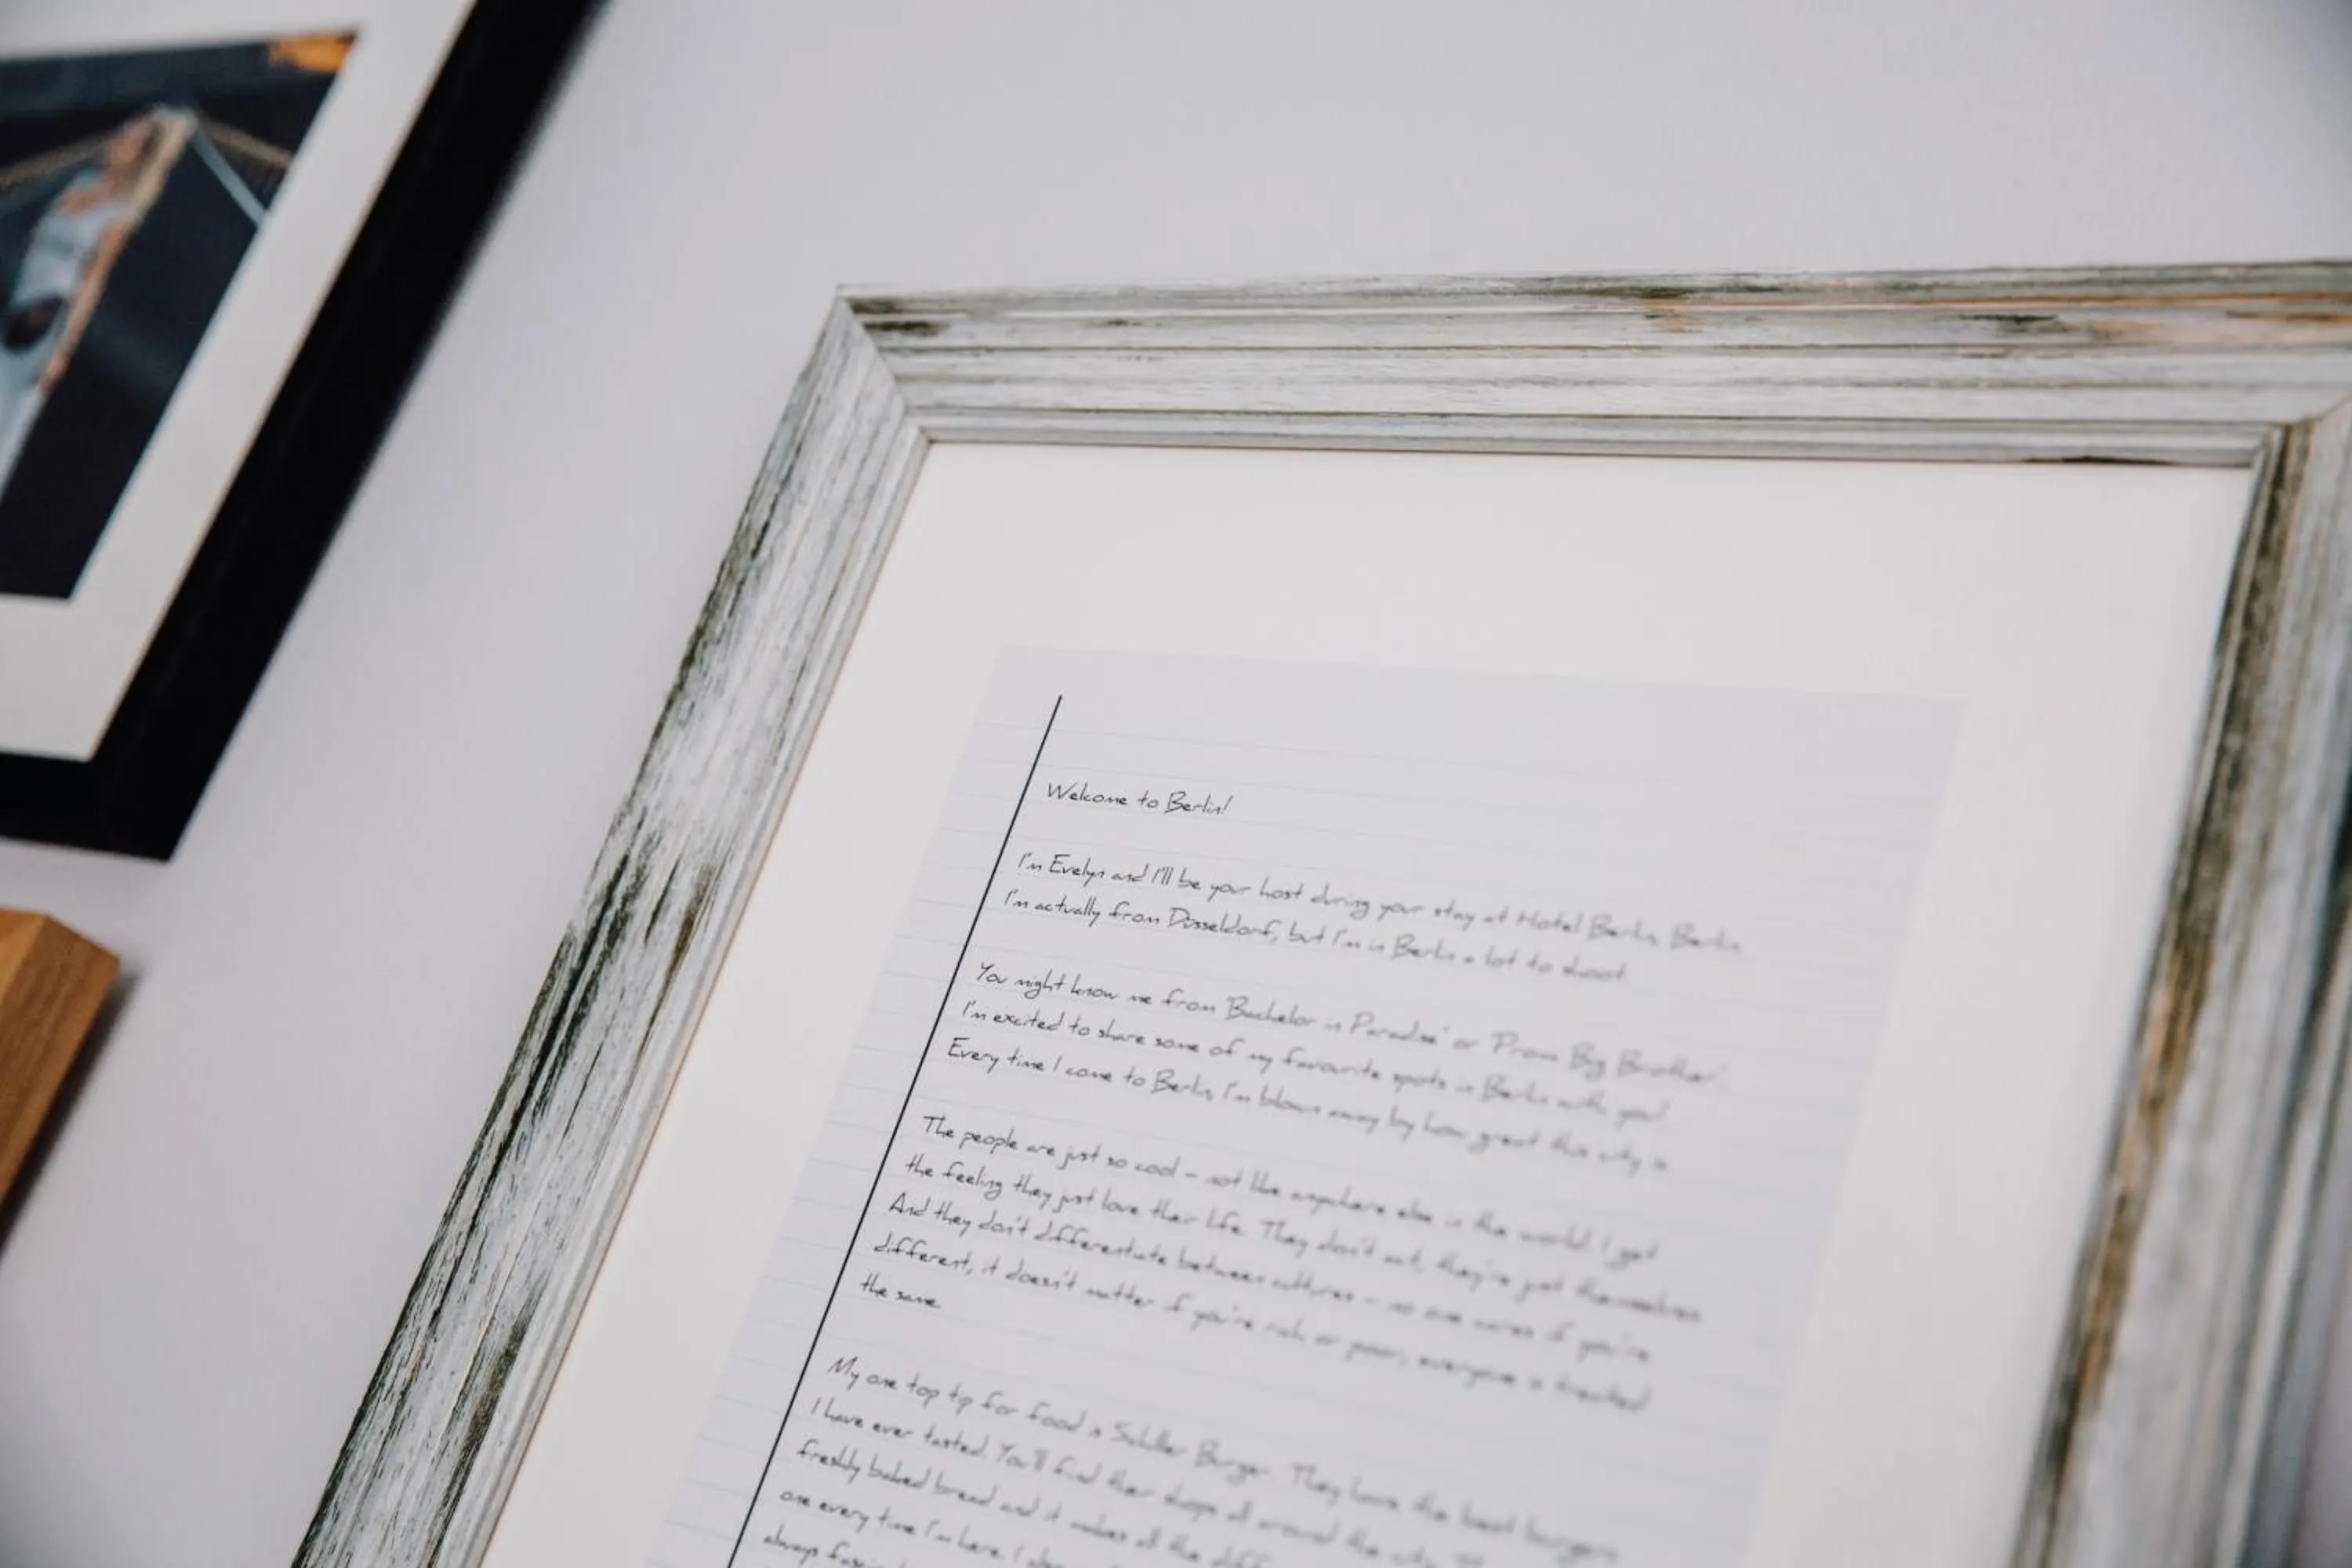 Welcome to Berlin!
I'm Evelyn and I'll be your host during your stay at Hotel Berlin, Berlin.
I'm actually from Düsseldorf, but I'm in Berlin a lot to shoot.
You might know me from 'Bachelor in Paradise' or 'Prom Big Brother'.
I'm excited to share some of my favourite spots in Berlin with you!
Every time I come to Berlin, I'm blown away by how great this city is.
The people are just so cool - not like anywhere else in the world. I get
the feeling they just love their life. They don't act, they're just themselves
And they don't differentiate between cultures - no one cares if you're
different, it doesn't matter if you're rich or poor, everyone is treated
the same.
My one top tip for food is Schiller Burger. They have the best burgers
I have ever tasted. You'll find their shops all around the city.
freshly baked bread and it makes all the
one every time I'm here. I
always